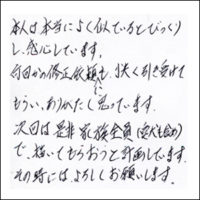 本人は本当によく似ているとびっくり
し、感心しています。
何回かの修正依頼も、快く引き受けて
もらい、ありがたく思っています。
次回は是非家族全員(愛犬も含め)
で、描いてもらおうと計画しています。
その時にはよろしくお願いします。